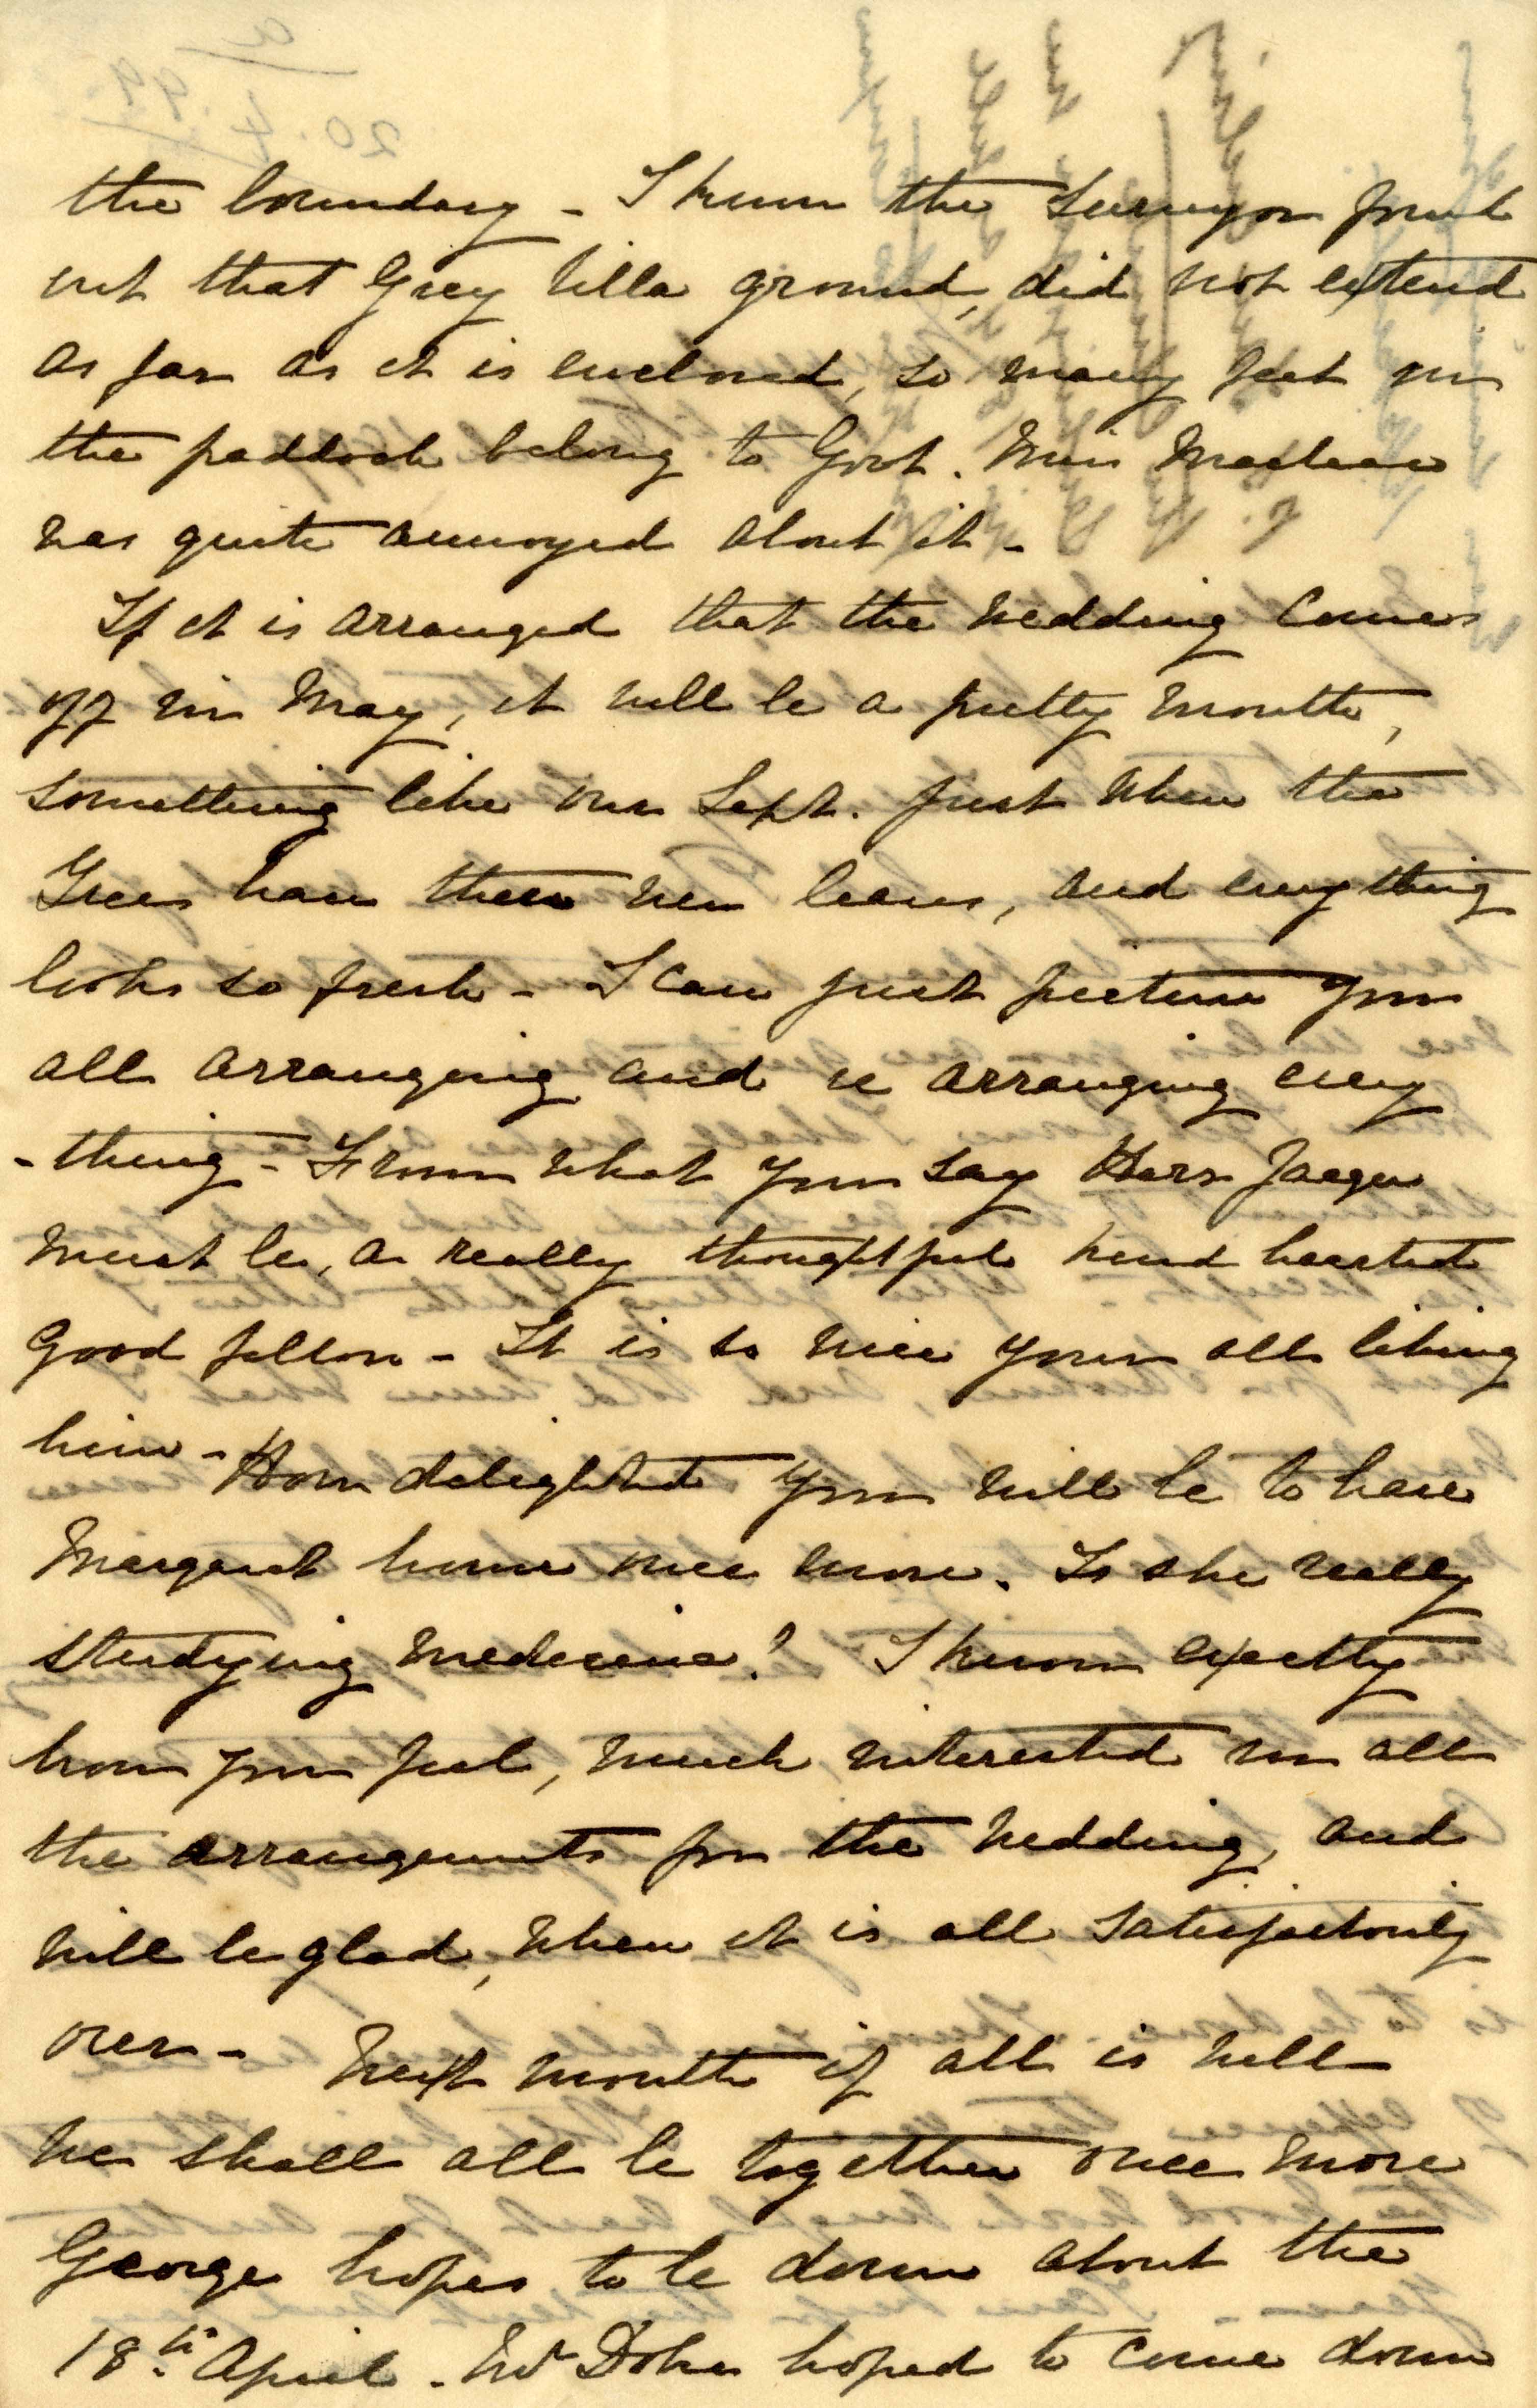 the boundary - I know the Surveyor found
out that Grey Villa ground, did not extend
as far as it is enclosed, so many feet in
the paddock belong to Govt. Miss Maclean
was quite annoyed about it -
If it is arranged that the wedding comes
off in May, it will be a pretty month,
something like our Sept. just when the
Trees have their new leaves, and everything
looks so fresh - I can just picture you
all arranging and re arranging every
-thing - From what you say Herr Jaeger
must be, a really thoughtful kind hearted
good fellow - It is so nice your all liking
him - How delighted you will be to have
Margaret home once more. Is she really
studying medecine? I know exactly
how you feel, much interested in all
the arrangements for the wedding, and
will be glad, when it is all satisfactorily
over - Next month if all is well
we shall all be together once more
George hopes to be down about the
18th April. Mr hoped to come down
20.4.99